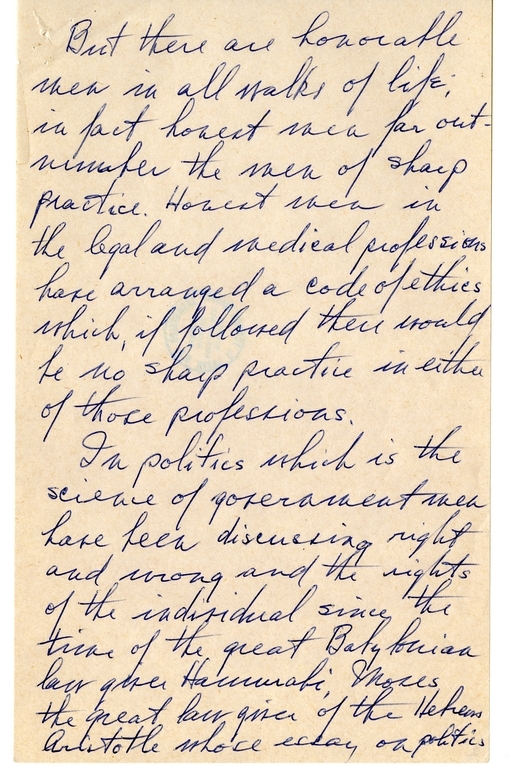 But there are honorable
men in all walks of life;
in fact honest men far out-
number the men of sharp
practice. Honest men in
the legal and medical professions
have arranged a code of ethics
which, if followed there would
be no sharp practice in either
of those professions.
In politics which is the
science of government men
have been discussing right
and wrong and the rights
of the individual since the
time of the great Babylonian
law giver Hammurabi, Moses
the great law giver of the Hebrews
Aristotle whose essay on politics